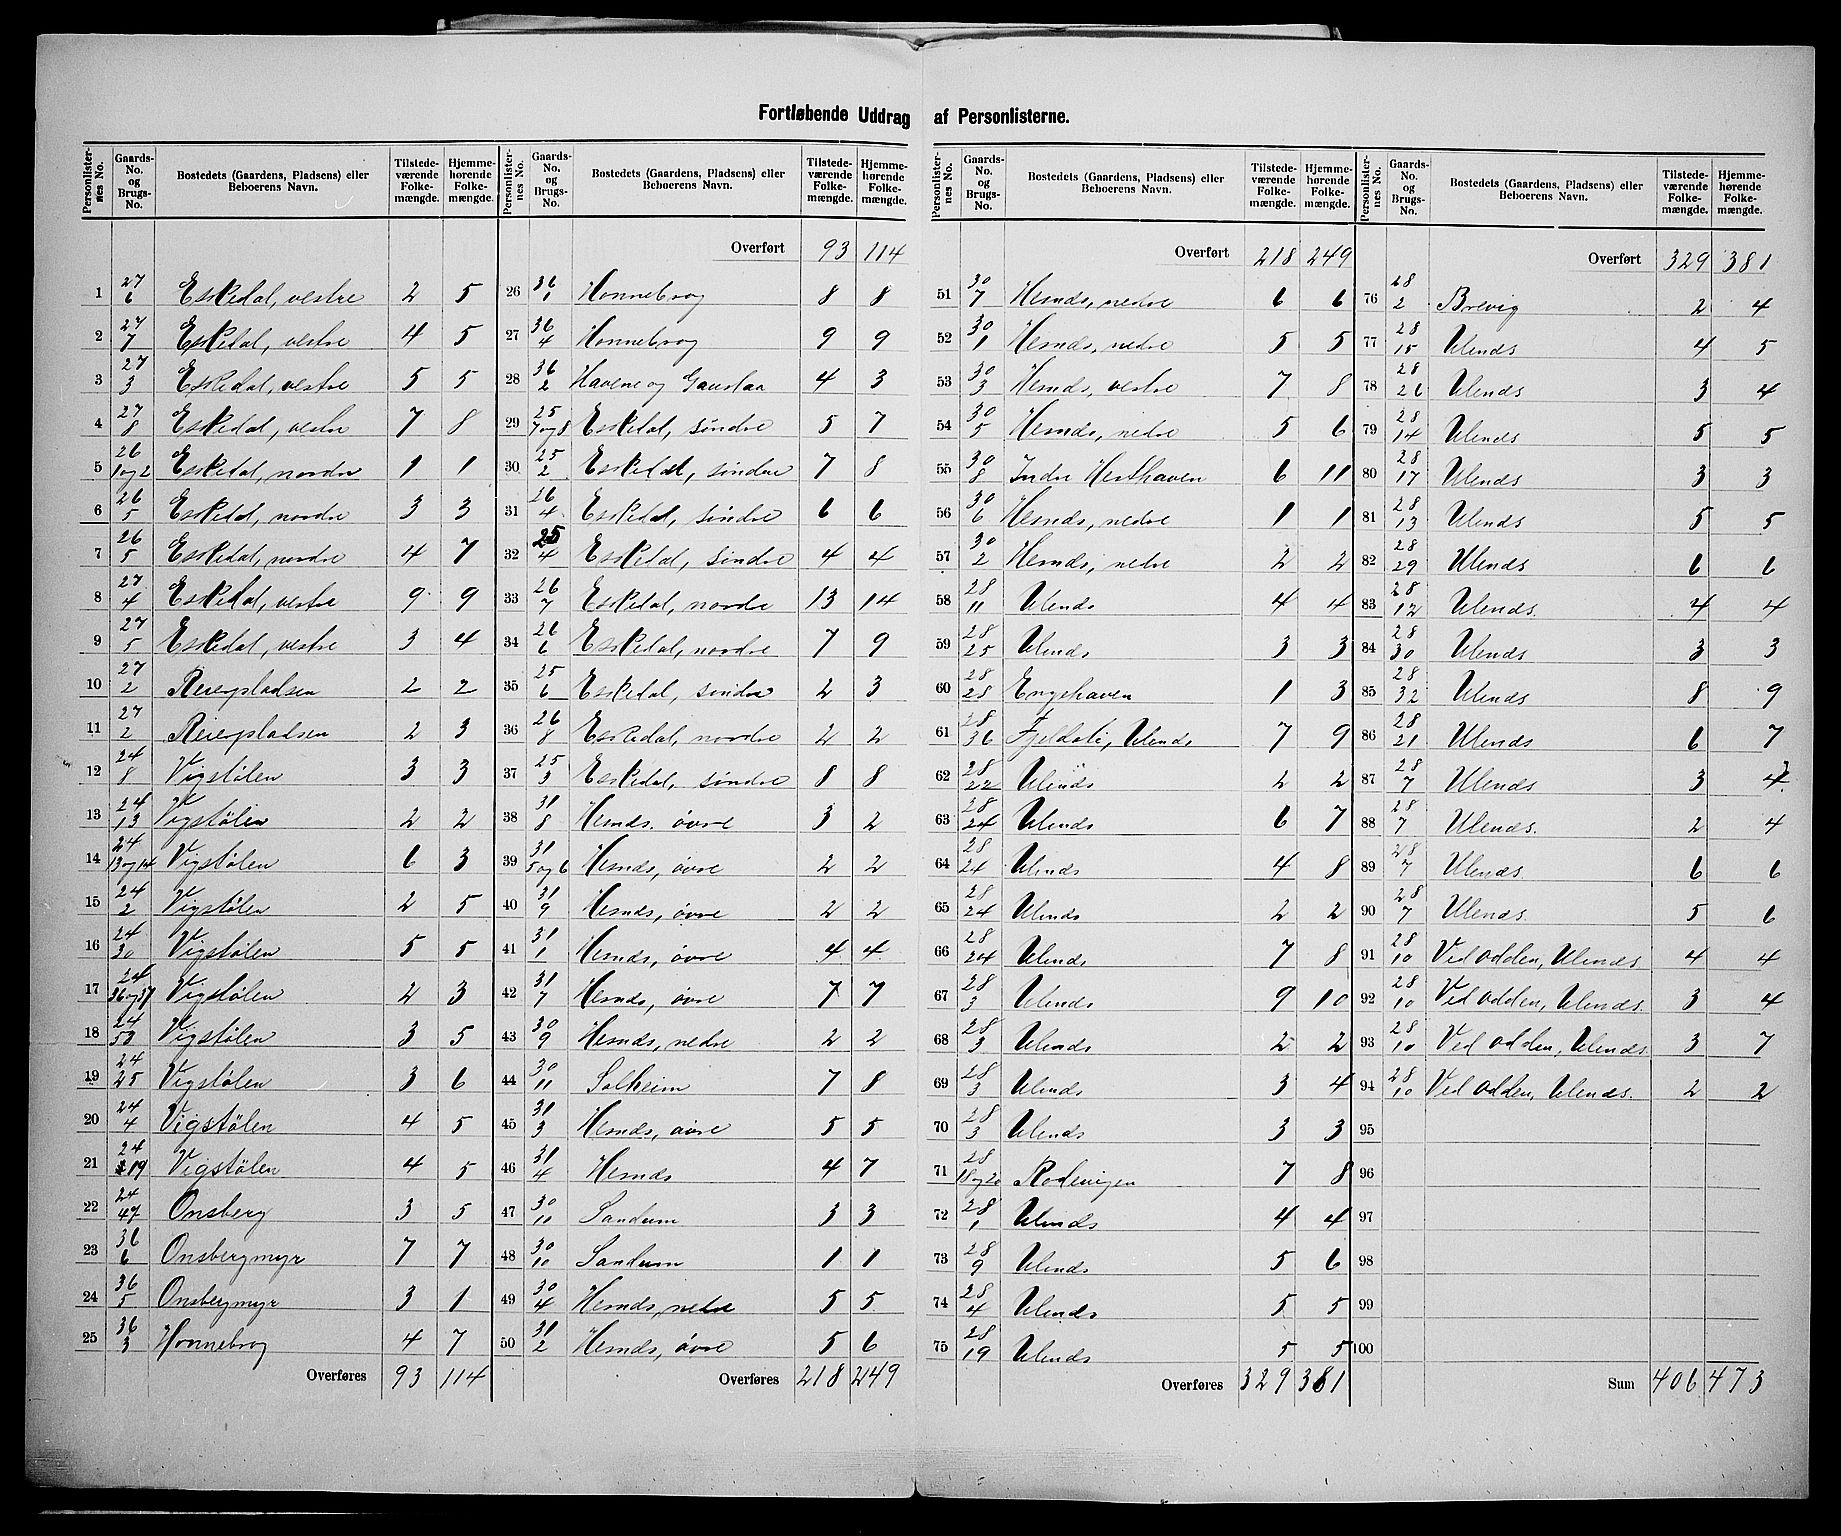 Fortløbende Uddrag af Personlisterne.
Personlisternes No. | Gaards-No. og Brugs-No. | Bostedets (Gaardens, Pladsens) eller Beboerens Navn. | Tilstedeværende Folkemængde. | Hjemmehørende Folkemængde.
1 27/6 Eskedal, vestre 2 5
2 27/7 Eskedal, vestre 4 5
3 27/3 Eskedal, vestre 5 5
4 27/8 Eskedal, vestre 7 8
5 26/1 og 2 Eskedal, nordre 1 1
6 26/5 Eskedal, nordre 3 3
7 26/5 Eskedal, nordre 4 7
8 27/4 Eskedal, vestre 9 9
9 27/5 Eskedal, vestre 3 4
10 27/2 Reierpladsen 2 2
11 27/2 Reierpladsen 2 3
12 24/8 Vigstølen 3 3
13 24/13 Vigstølen 2 2
14 24/13 og 14 Vigstølen 6 3
15 24/2 Vigstølen 2 5
16 24/30 Vigstølen 5 5
17 24/36 og 37 Vigstølen 2 3
18 24/53 Vigstølen 3 5
19 24/25 Vigstølen 3 6
20 24/4 Vigstølen 4 5
21 24/19 Vigstølen 4 5
22 24/47 Onsberg 3 5
23 36/6 Onsbergmyr 7 7
24 36/5 Onsbergmyr 3 1
25 36/3 Honnebrog 4 7
Overføres 93 114
Personlisternes No. | Gaards-No. og Brugs-No. | Bostedets (Gaardens, Pladsens) eller Beboerens Navn. | Tilstedeværende Folkemængde. | Hjemmehørende Folkemængde.
Overført 93 114
26 36/1 Honnebrog 8 8
27 36/4 Honnebrog 9 9
28 36/2 Havene og Gauslaa 4 3
29 25/7 og 8 Eskedal, søndre 5 7
30 25/2 Eskedal, søndre 7 8
31 26/4 Eskedal, søndre 6 6
32 25/4 Eskedal, søndre 4 4
33 26/7 Eskedal, nordre 13 14
34 26/6 Eskedal, nordre 7 9
35 25/6 Eskedal, søndre 2 3
36 26/8 Eskedal, nordre 2 2
37 25/3 Eskedal, søndre 8 8
38 31/8 Hesnds. øvre 3 2
39 31/5 og 6 Hesnds, øvre 2 2
40 31/9 Hesnds, øvre 2 2
41 31/1 Hesnds, øvre 4 4
42 31/7 Hesnds, øvre 7 7
43 30/9 Hesnds, nedre 2 2
44 30/11 Solheim 7 8
45 31/3 Hesnds, øvre 5 5
46 31/4 Hesnds 4 7
47 30/10 Sandum 3 3
48 30/10 Sandum 1 1
49 30/4 Hesnds, nedre 5 5
50 31/2 Hesnds, øvre 5 6
Overføres 218 249
Personlisternes No. | Gaards-No. og Brugs-No. | Bostedets (Gaardens, Pladsens) eller Beboerens Navn. | Tilstedeværende Folkemængde. | Hjemmehørende Folkemængde.
Overført 218 249
51 30/7 Hesnds, nedre 6 6
52 30/1 Hesnds, nedre 5 5
53 30/3 Hesnds, vestre 7 8
54 30/5 Hesnds, nedre 5 6
55 30/8 Indre Hesthaven 6 11
56 30/6 Hesnds, nedre 1 1
57 30/2 Hesnds, nedre 2 2
58 28/11 Ulends 4 4
59 28/25 Ulends 3 3
60 28/28 Engehaven 1 3
61 28/36 Fjeldali, Ulends 7 9
62 28/22 Ulends 2 2
63 28/24 Ulends 6 7
64 28/24 Ulends 4 8
65 28/24 Ulends 2 2
66 28/24 Ulends 7 8
67 28/3 Ulends 9 10
68 28/3 Ulends 2 2
69 28/3 Ulends 3 4
70 28/3 Ulends 3 3
71 28/18 og 20 Rodevigen 7 8
72 28/1 Ulends 4 4
73 28/9 Ulends 5 6
74 28/4 Ulends 5 5
75 28/19 Ulends 5 5
Overføres 329 381
Personlisternes No. | Gaards-No. og Brugs-No. | Bostedets (Gaardens, Pladsens) eller Beboerens Navn. | Tilstedeværende Folkemængde. | Hjemmehørende Folkemængde.
Overført 329 381
76 28/2 Brevig 2 4
77 28/15 Ulends 4 5
78 28/26 Ulends 3 4
79 28/14 Ulends 5 5
80 28/17 Ulends 3 3
81 28/13 Ulends 5 5
82 28/29 Ulends 6 6
83 28/12 Ulends. 4 4
84 28/30 Ulends 3 3
85 28/32 Ulends 8 9
86 28/21 Ulends 6 7
87 28/7 Ulends 3 3
88 28/7 Ulends. 2 4
89 28/7 Ulends 6 6
90 28/7 Ulends. 5 6
91 28/10 Ved odden, Ulends 4 4
92 28/10 Ved odden, Ulends. 3 4
93 28/10 Ved odden, Ulends 3 7
94 28/10 Ved odden, Ulends. 2 2
95
96
97
98
99
100
Sum 406 473